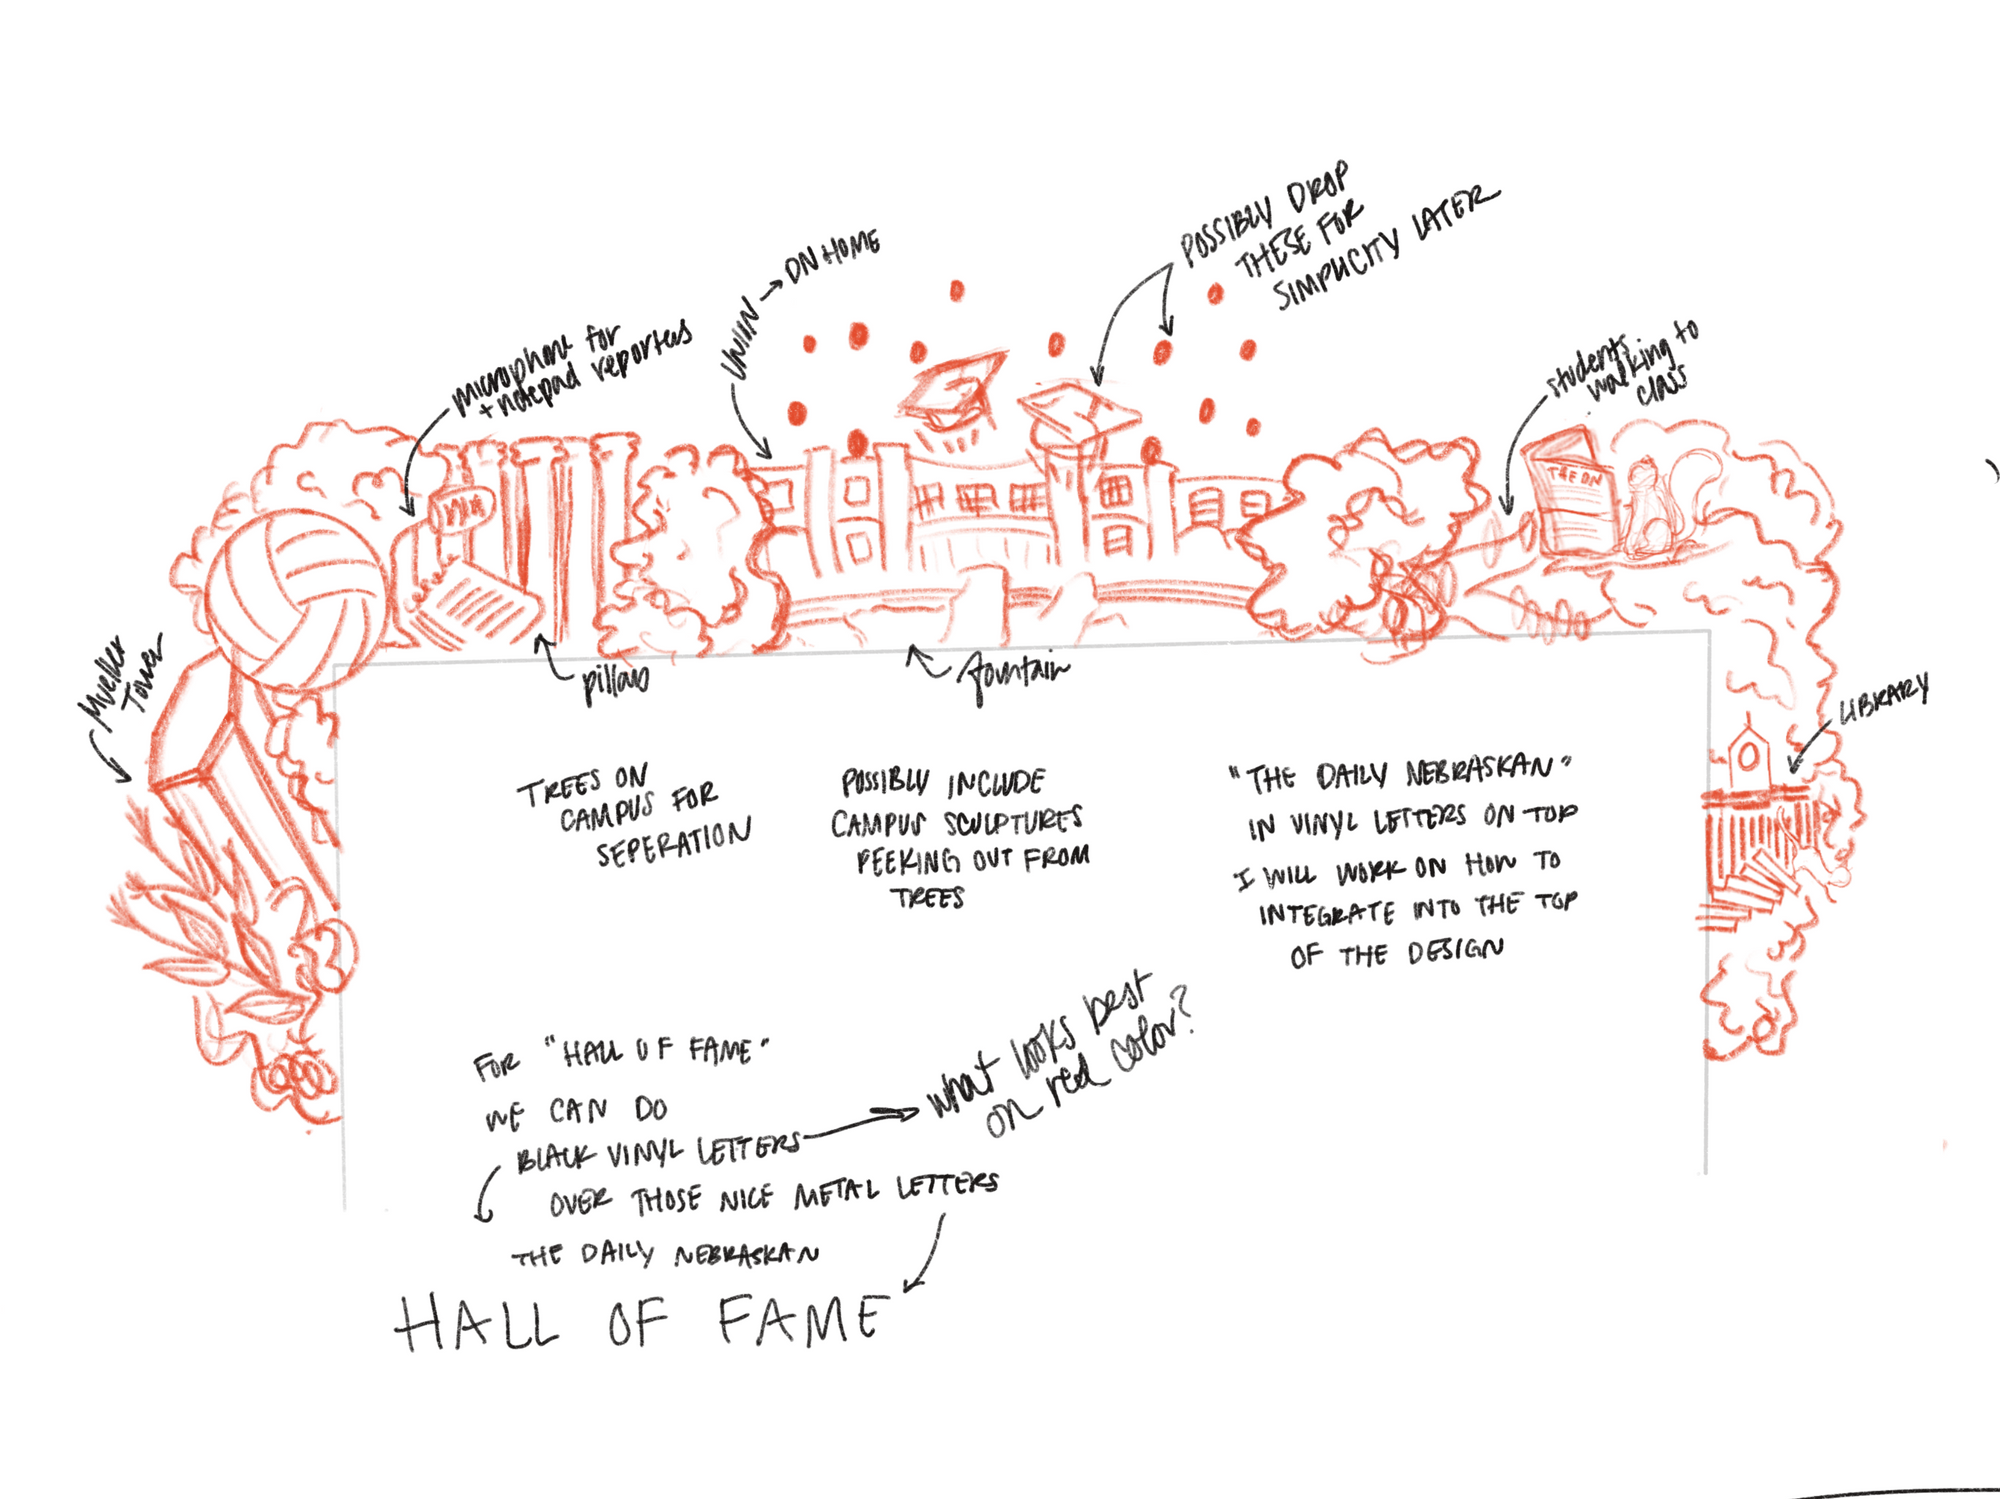 POSSIBLY DROP
THESE FOR
SIMPLICITY LATER
UNION → DN HOME
microphone for
+ notepad reporters
students
walking to
class
THE DN
Mueller
Tower
pillars
fountain
LIBRARY
TREES ON
CAMPUS FOR
SEPERATION
POSSIBLY INCLUDE
CAMPUS SCULPTURES
PEEKING OUT FROM
TREES
"THE DAILY NEBRASKAN"
IN VINYL LETTERS ON TOP
I WILL WORK ON HOW TO
INTEGRATE INTO THE TOP
OF THE DESIGN
FOR "HALL OF FAME"
WE CAN DO
BLACK VINYL LETTERS
what looks best
on red color?
OVER THOSE NICE METAL LETTERS
THE DAILY NEBRASKAN
HALL OF FAME